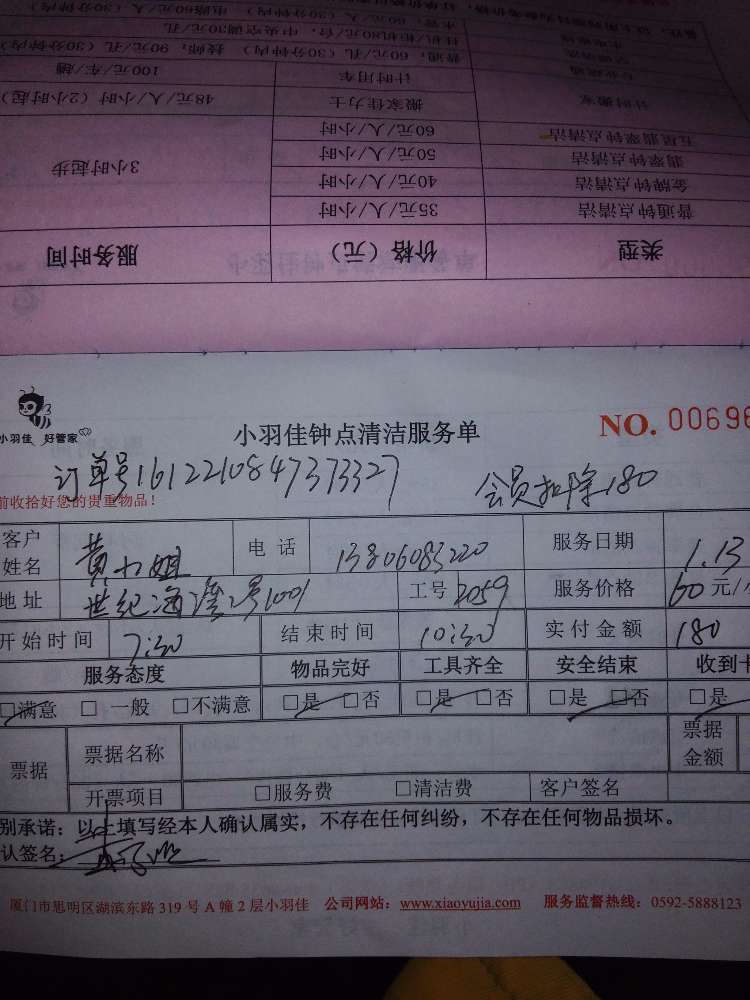 类型 价格（元） 服务时间
普通钟点清洁 35元/人/小时 3小时起步
金牌钟点清洁 40元/人/小时
翡翠钟点清洁 50元/人/小时
五星翡翠钟点清洁 60元/人/小时
计时搬家 搬家佳力士 48元/人/小时（2小时起）
计时用车 100元/车/趟
普通：60元/孔（30分钟内） 技师：90元/孔（30分钟内）
小羽佳 好管家
小羽佳钟点清洁服务单
NO. 00696
订单号1612210847373327 会员扣除180
前收拾好您的贵重物品！
客户姓名 黄小姐 电话 13806083220 服务日期 1.13
地址 世纪海湾2号1001 工号 2059 服务价格 60元/
开始时间 7:30 结束时间 10:30 实付金额 180
服务态度 物品完好 工具齐全 安全结束 收到卡
□满意 □一般 □不满意 □是 □否 □是 □否 □是 □否 □是
票据 票据名称 票据金额
开票项目 □服务费 □清洁费 客户签名
别承诺：以上填写经本人确认属实，不存在任何纠纷，不存在任何物品损坏。
认签名：
厦门市思明区湖滨东路319号A幢2层小羽佳 公司网站：www.xiaoyujia.com 服务监督热线：0592-5888123